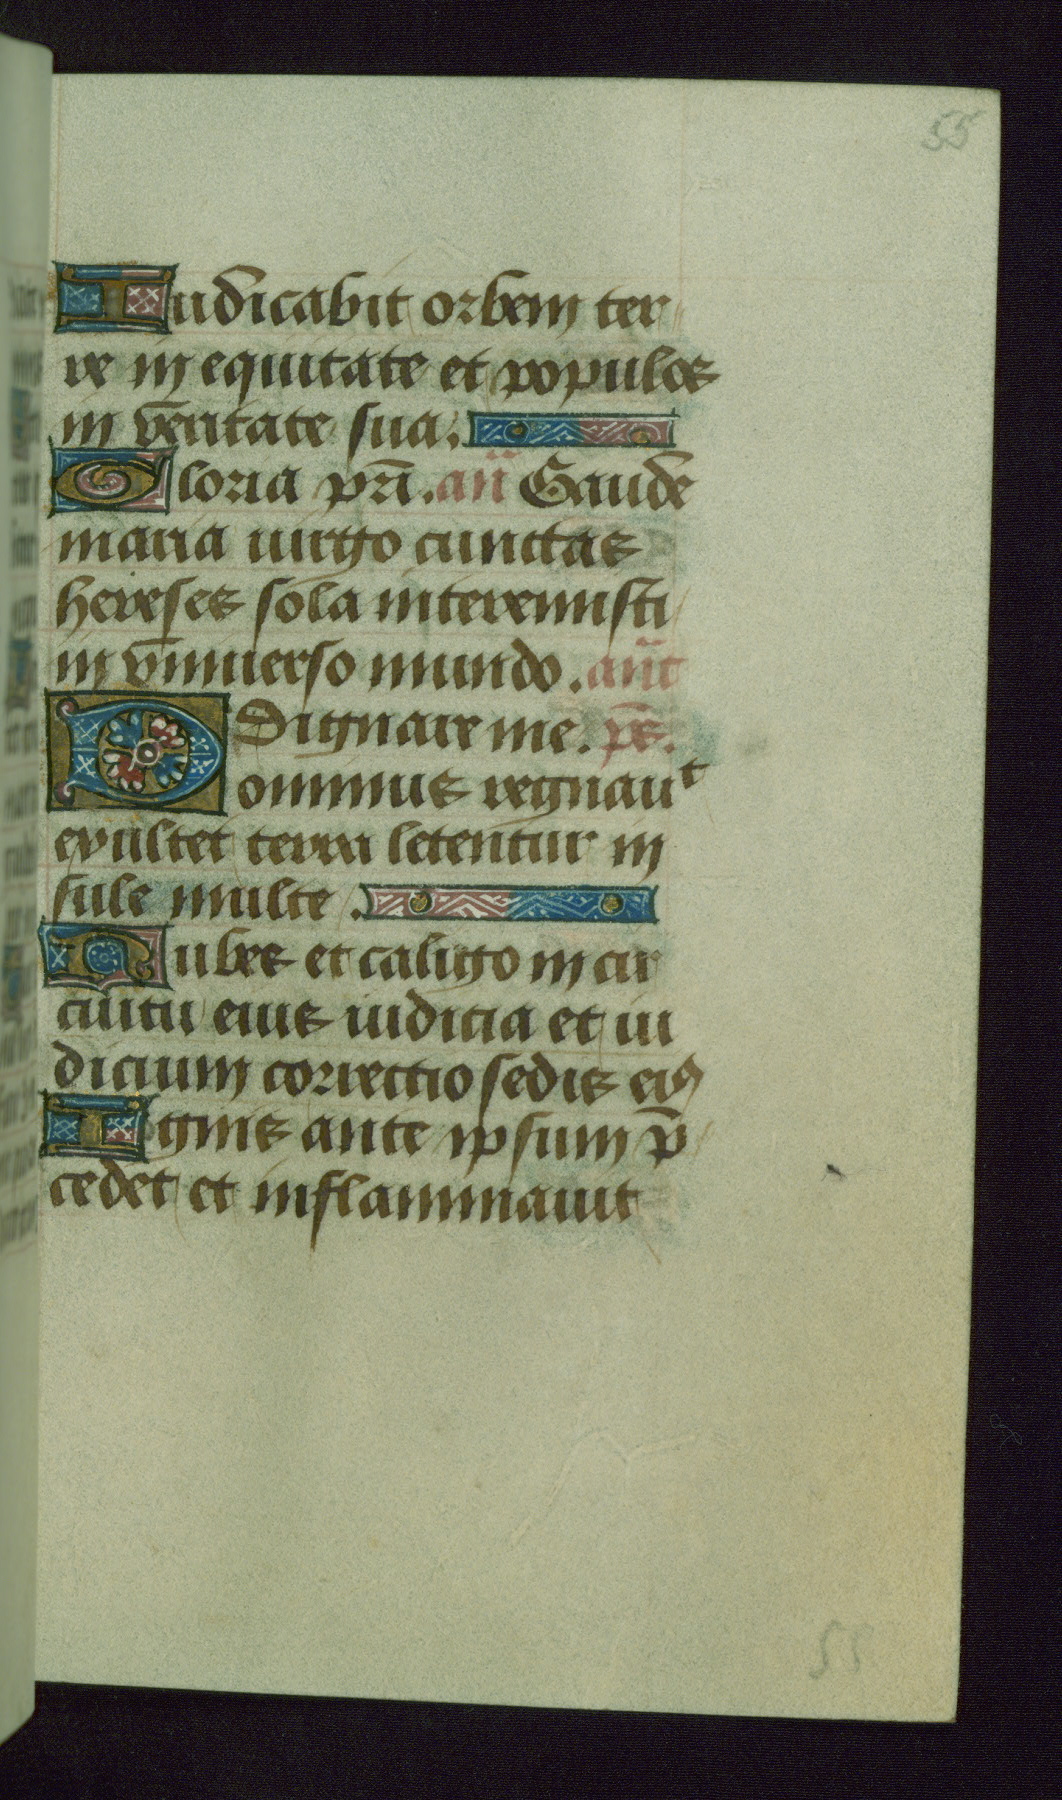 55
Iudicabit orbem ter
re in equitate et populos
in veritate sua.
Gloria pri. an Gaude
maria uirgo cunctas
hereses sola interemisti
in vniuerso mundo. ant
Dignare me. ps.
Dominus regnauit
exultet terra letentur in
sule multe.
Nubes et caligo in cir
cuitu eius iudicia et iu
dicium correctio sedis eius
Ignis ante ipsum p̄
cedet et inflammauit